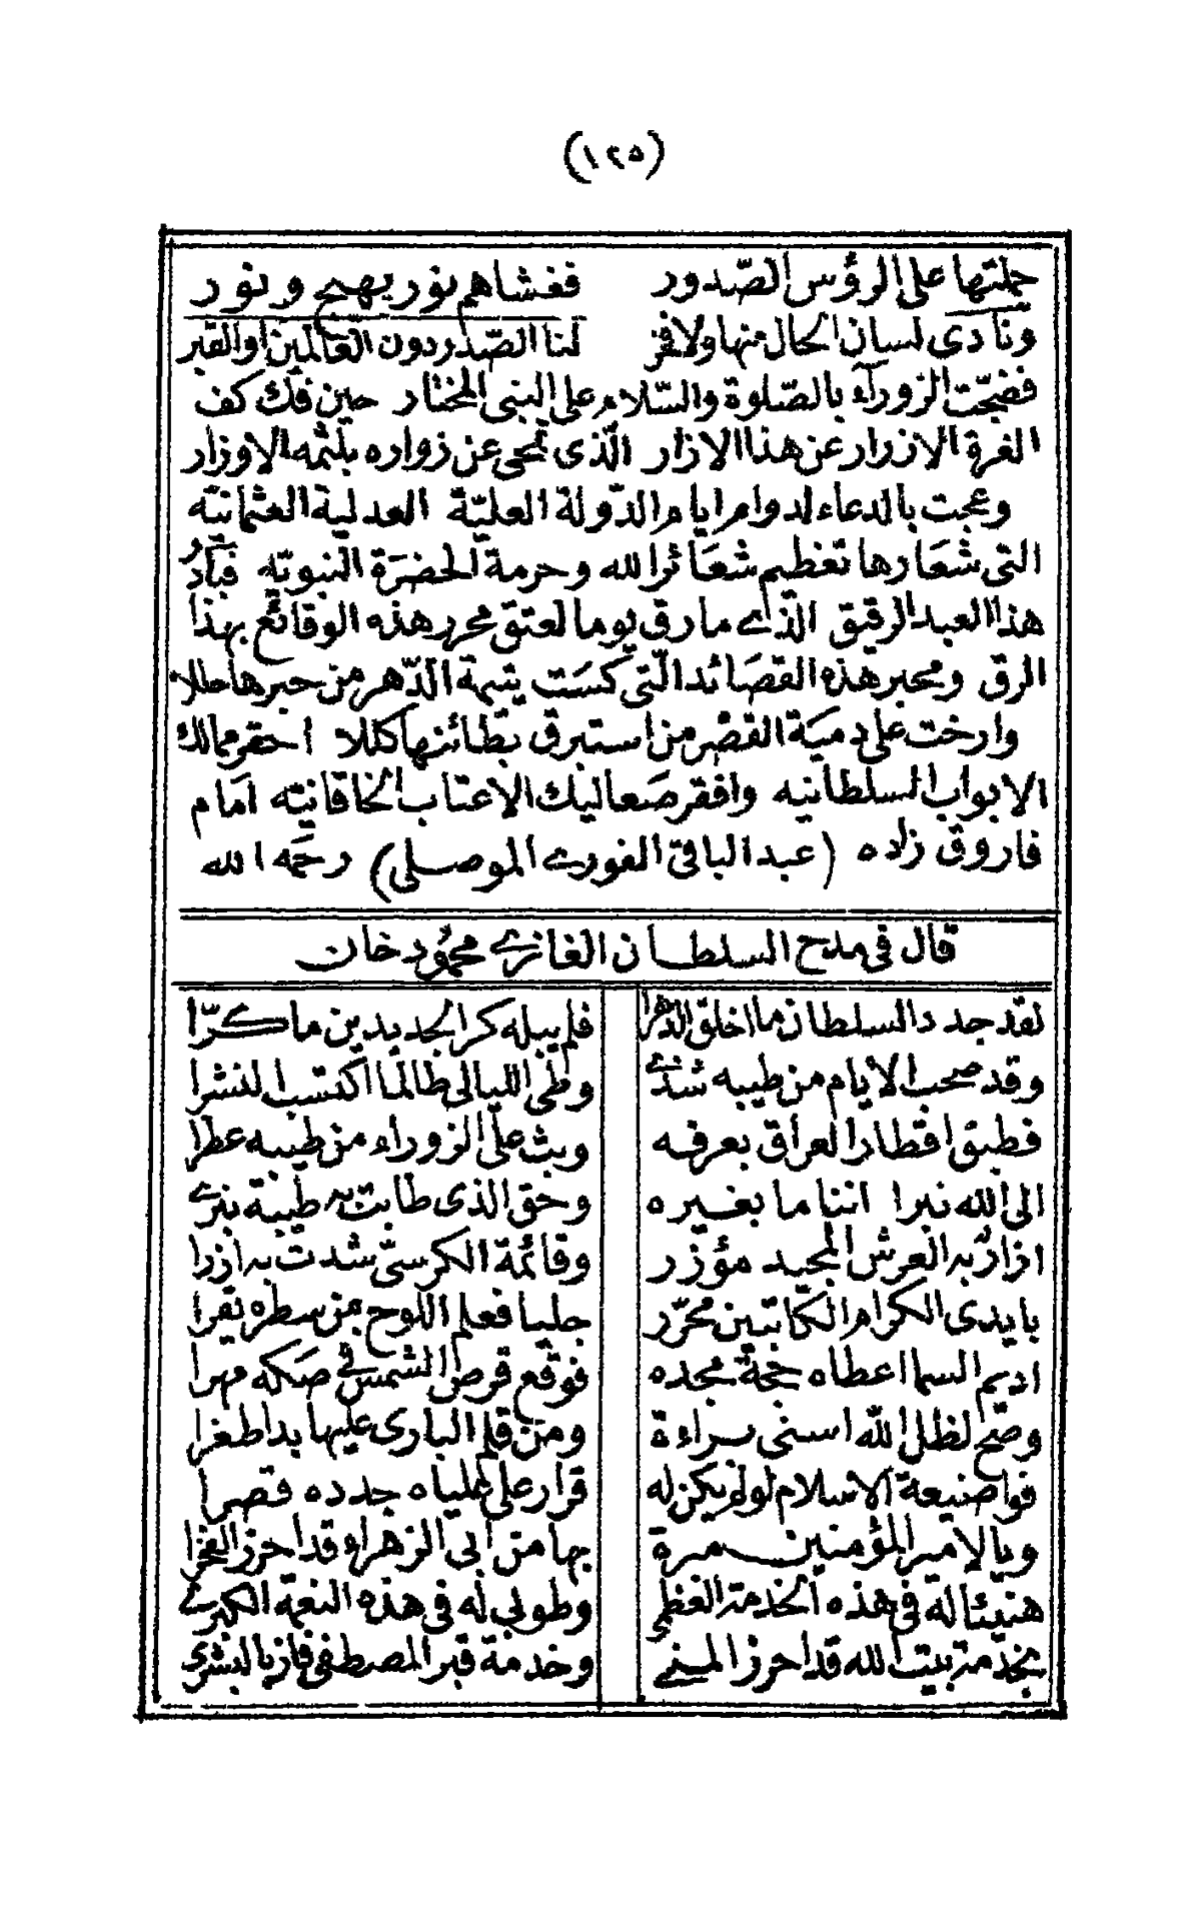 (١٢٥)
حملتها على الرؤس الصّدور فغشاهم نور يهيج ونور
ونادى لسان الحال منها ولا فخر لنا الصّدر دون العالمين او القبر
فضجّت الزورآء بالصّلوة والسّلام على النبى المختار حين فك كف
الغرة الازرار عن هذا الازار الّذى تمحى عن زواره بلثمه الاوزار
وعجت بالدعاء لدوام ايام الدّولة العليّة العدلية العثمانيّه
التى شعارها تعظيم شعائر الله وحرمة الحضرة النبويّه
هذا العبد الرقيق الّذى مارق يوما لعتق محرر هذه الوقائع بهذا
الرق ومحبر هذه القصائد الّتى كست يتيمة الدّهر من حبرها حللا
وارخت على دمية القصر من استبرق بطائنها كللا احقر ممالك
الابواب السلطانيه وافقر صعاليك الاعتاب الخاقانيّه امام
فاروق زاده (عبد الباقى الفورى الموصلى) رحمه الله
قال فى مدح السلطان الغازى محمود خان
لقد جدد السلطان ما اخلق الدهرا فلم يبله كر الجديدين ما كرّا
وقد صحب الايام من طيبه شذى وطى الليالى طالما اكتسب لنشرا
فطبق اقطار العراق بعرفه وبث على الزوراء من طيبه عطرا
الى الله نبرا اننا ما بغيره وحق الذى طابت به طيبة نبرى
ازار به العرش المجيد مؤزر وقائمة الكرسىّ شدت به ازرا
بايدى الكرام الكاتبين محرّر جليا فعلم اللوح من سطره يقرا
اديم السما اعطاه حجة مجده فوقّع قرص الشمس فى صكه مهرا
وصحّ لظل الله اسنى براءة ومن قلم البارى عليها بدا طغرا
فوا ضيعة الاسلام لو لم يكن له قرار على علياه جدده قصرا
ويا لامير المؤمنين مبرة بها من ابى الزهراء قد احرز الفخرا
هنيئا له فى هذه الخدمة العظمى وطوبى له فى هذه النعمة الكبرى
بخدمة بيت الله قد احرز المنى وخدمة قبر المصطفى فاز بالبشرى